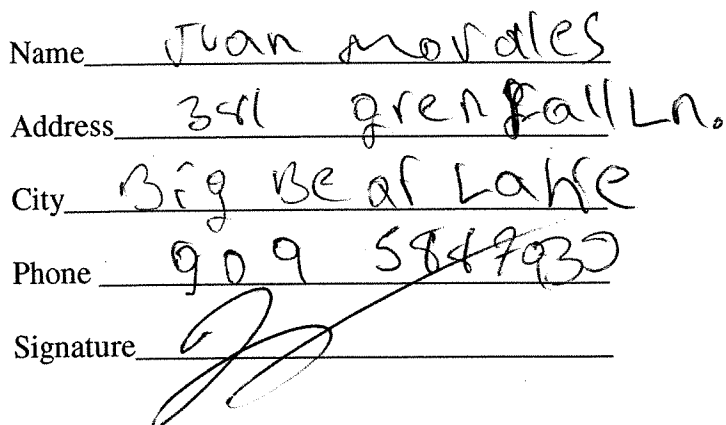 Name Juan Morales
Address grenfall Ln.
City Big Bear Lake
Phone 909 5847930
Signature